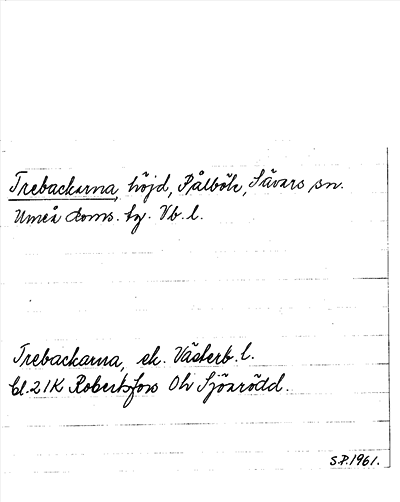 Trebackarna, höjd, Pålböle, Sävars sn.
Umeå doms. tg. Vb. l.
Trebackarna, ek. Västerb. l.
Bl. 21K Robertsfors Ov Sjönrödd.
S.P. 1961.